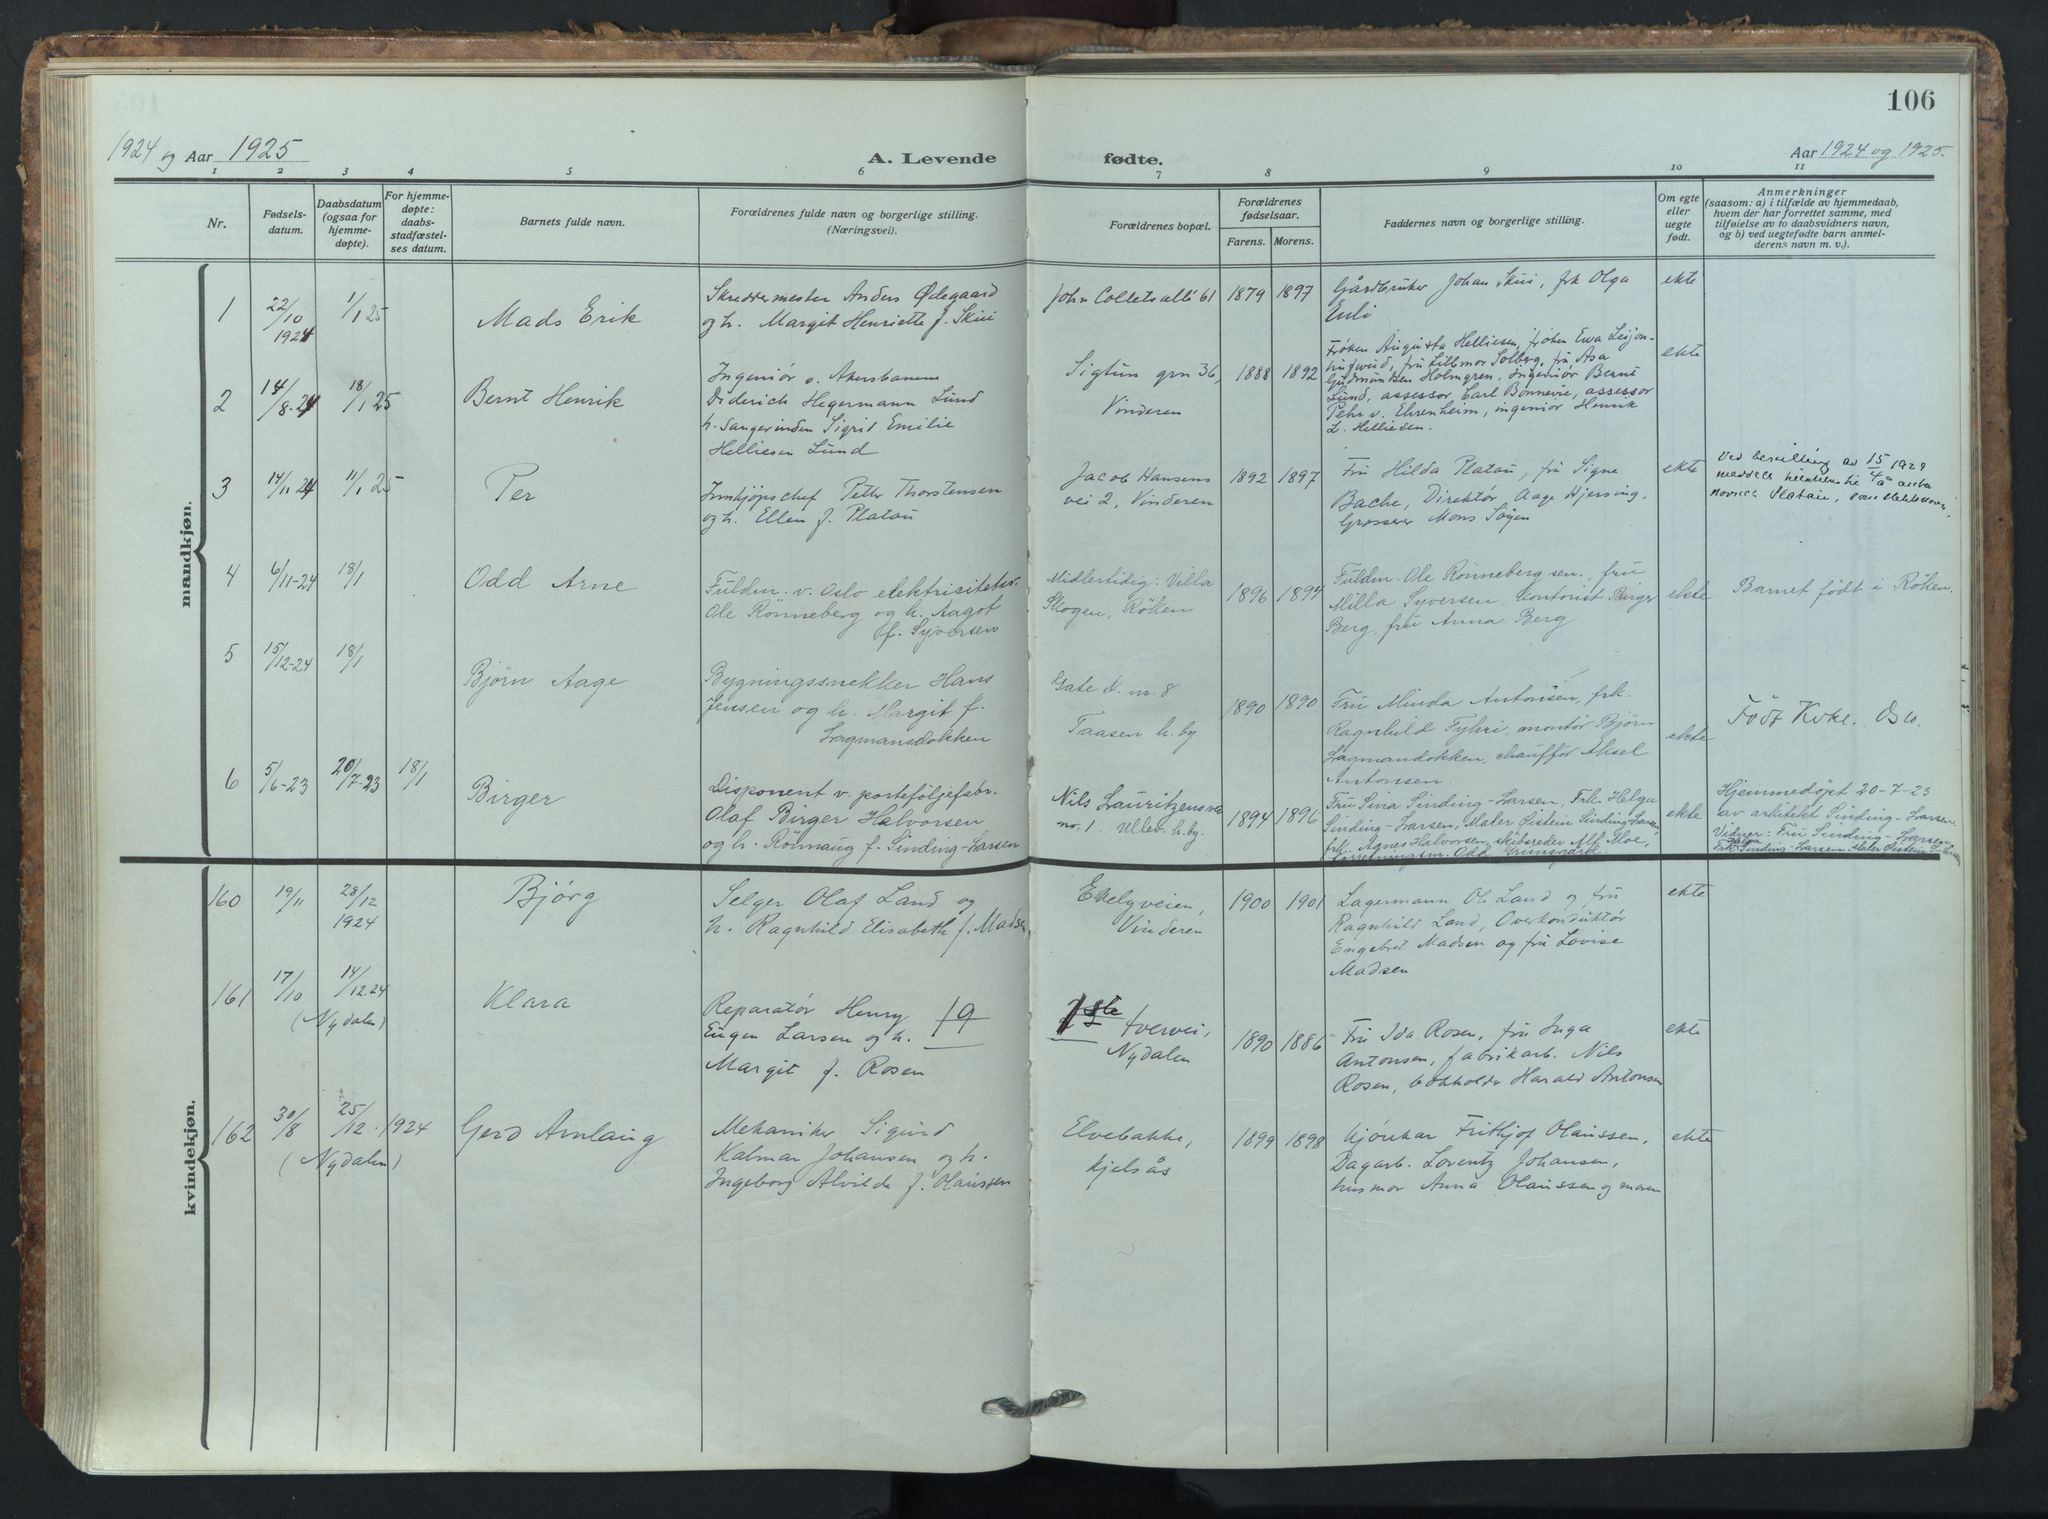 106
1924 og Aar 1925
A. Levende fødte.
Aar 1924 og 1925.
1 2 3 4 5 6 7 8 9 10 11
Nr.
Fødsels-
datum.
Daabsdatum
(ogsaa for
hjemme-
døpte).
For hjemme-
døpte:
daabs-
stadfæstel-
ses datum.
Barnets fulde navn.
Forældrenes fulde navn og borgerlige stilling.
(Næringsvei).
Forældrenes bopæl.
Forældrenes
fødselsaar.
Farens. Morens.
Faddernes navn og borgerlige stilling.
Om egte
eller
uegte
født.
Anmerkninger
(saasom: a) i tilfælde av hjemmedaab,
hvem der har forrettet samme, med
tilføielse av to daabsvidners navn,
og b) ved uegtefødte barn anmel-
derens navn m. v.).
mandkjøn.
1
22/10
1924
1/1 25
Mads Erik
Skreddermester Anders Ødegaard
og h. Margit Henriette f. Skui
John Colletsallé 61
1879 1897
Gårdbruker Johan Skui, frk Olga
Enli
ekte
2
14/8-24
18/1 25
Bernt Henrik
Ingeniör v. Akersbanene
Diderich Hegermann Lund
h. Sangerinden Sigrid Emilie
Helliesen Lund
Sigtun grn 36,
Vinderen
1888 1892
Frøken Augusta Helliesen, frøken Ewa Leijon-
hufwud, fru Lillemor Solberg, fru Asa
Gudmundsen Holmgren, ingeniør Bernt
Lund, assessor Carl Bonnevie, assessor
Pehr v. Ehrenheim, ingeniør Henrik
L. Helliesen.
ekte
3
14/11 24
11/1 25
Per
Innkjöpschef Petter Thorstensen
og h. Ellen f. Platou
Jacob Hansens
vei 2, Vinderen
1892 1897
Fru Hilda Platou, fru Signe
Bache, Direktör Aage Hjersing,
Grosserer Mons Søyen
ekte
Ved bevilling av 15/4 1929
navnet Platou, som slektsnavn.
4
6/11-24
18/1
Odd Arne
Fuldm. v. Oslo elektricitetsv.
Ole Rönneberg og h. Aagot
f. Syversen
Midlertidig: Villa
Skogen, Röken
1896 1894
Fuldm. Ole Rönneberg sen., fru
Milla Syversen, Kontorist Birger
Berg, fru Anna Berg
ekte
Barnet født i Röken.
5
15/12-24
18/1
Björn Aage
Bygningssnekker Hans
Jensen og h. Margit f.
Lagmansdokken
Gate d. nr. 8
Taasen h. by
1890 1890
Fru Minda Antonsen, frk.
Ragnhild Fyhri, montör Björn
Lagmandokken, chaufför Aksel
Antonsen.
ekte
Födt Kvkl. Oslo.
6
5/6-23
20/7-23
18/1
Birger
Disponent v. porteføljefabr.
Olaf Birger Halvorsen
og h. Rönnaug f. Sinding-Larsen
Nils Lauritzens vei
no. 1. Ullev. h. by.
1894 1896
Fru Sina Sinding-Larsen, Frk. Helga
Sinding-Larsen, Maler Øistein Sinding-Larsen,
frk. Agnes Halvorsen, skibsreder Alf Moe,
Forretningsm. Odd Grimsgård
ekte
Hjemmedøpt 20-7-23
av arkitekt Sinding-Larsen.
Vidner: Fru Sinding-Larsen
Frk. Helga Sinding-Larsen. Maler Øistein S-Larsen
kvindekjøn.
160
19/11
28/12
1924
Bjørg
Selger Olaf Land og
h. Ragnhild Elisabeth f. Madsen
Ekelyveien,
Vinderen
1900 1901
Lagermann Ole Land og fru
Ragnhild Land, Overkonduktør
Engebret Madsen og fru Lovise
Madsen
ekte
161
17/10
14/12.24
(Nydalen)
Klara
Reparatør Henry
Eugen Larsen og h.
Margit f. Rosen
19
tvervei,
Nydalen
1890 1886
Fru Ida Rosen, fru Inga
Antonsen, fabrikarb. Nils
Rosen, bokholder Harald Antonsen
ekte
162
30/8
25/12. 1924
(Nydalen)
Gerd Arnlaug
Mekaniker Sigurd
Kalmar Johansen og h.
Ingeborg Alvilde f. Olaussen
Elvebakke,
Kjelsås
1899 1898
Kjörekar Frithjof Olaussen,
Dagarb. Lorentz Johansen,
husmor Anna Olaussen og moren
ekte